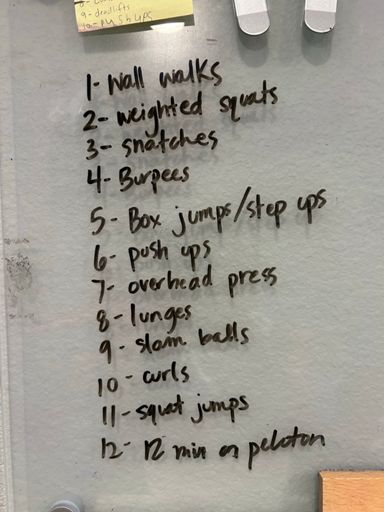 9- deadlifts
10- push ups
1- wall walks
2- weighted squats
3- snatches
4- Burpees
5- Box jumps/step ups
6- push ups
7- overhead press
8- lunges
9- slam balls
10- curls
11- squat jumps
12- 12 min on peloton